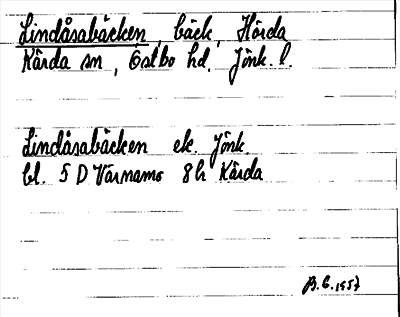 Lindåsabäcken, bäck, Hörda
Kärda sn, Östbo hd. Jönk. l.
Lindåsabäcken ek. Jönk.
bl. 5 D Värnamo 8h Kärda
B.E. 1957